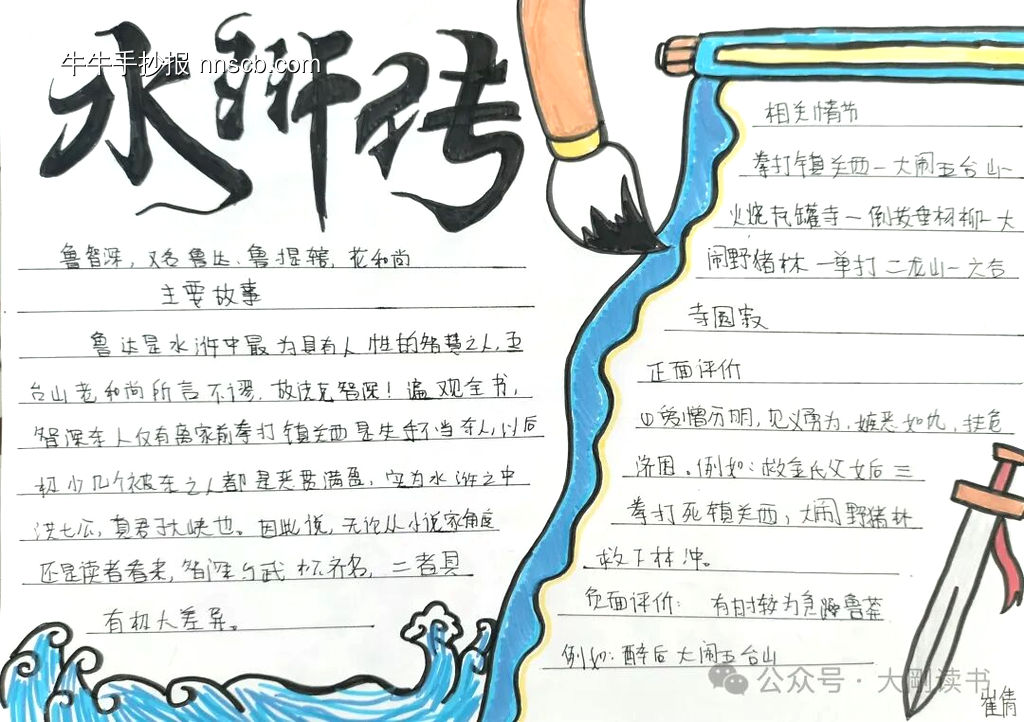 水浒传
牛牛手抄报 nnscb.com
鲁智深，又名鲁达、鲁提辖，花和尚
主要故事
鲁达是水浒中最为具有人性的智慧之人，五
台山老和尚所言不谬，故法名智深！遍观全书，
智深杀人仅有离家前拳打镇关西是失手不当杀人，以后
极少几个被杀之人都是恶贯满盈，实为水浒之中
洪七公，真君子大侠也。因此说，无论从小说家角度
还是读者看来，智深与武松齐名，二者具
有极大差异。
相关情节
拳打镇关西－大闹五台山－
火烧瓦罐寺－倒拔垂杨柳－大
闹野猪林－单打二龙山－六合
寺圆寂
正面评价
①爱憎分明，见义勇为，嫉恶如仇，扶危
济困。例如：救金氏父女后三
拳打死镇关西，大闹野猪林
救下林冲。
负面评价：有时较为危险鲁莽
例如：醉后大闹五台山
公众号·大刚读书
崔倩